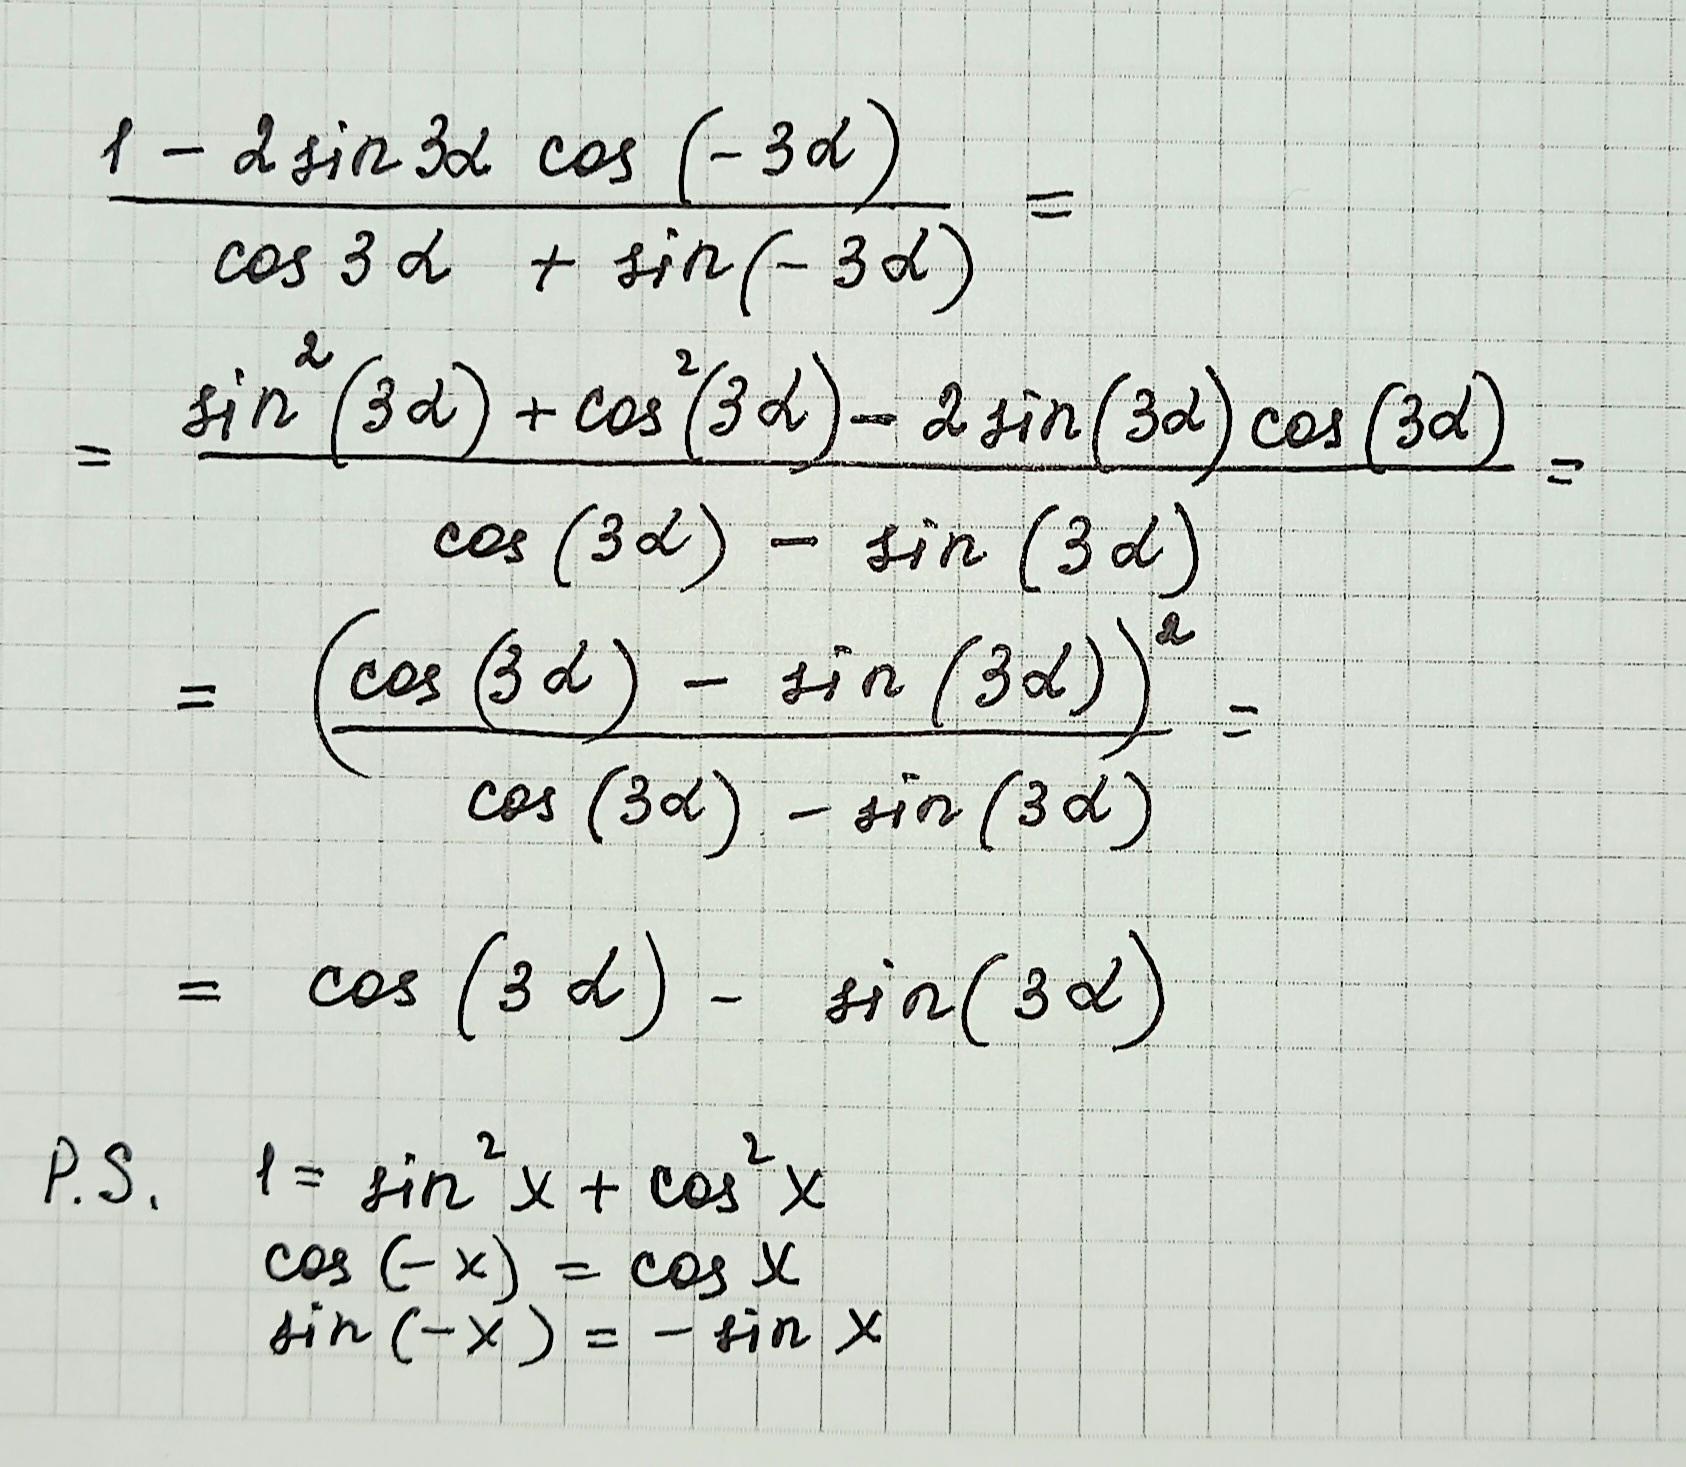 1 - 2 sin 3α cos (-3α)
cos 3α + sin (-3α) =
= sin² (3α) + cos² (3α) - 2 sin (3α) cos (3α) =
cos (3α) - sin (3α)
= (cos (3α) - sin (3α))² =
cos (3α) - sin (3α)
= cos (3α) - sin (3α)
P.S. 1 = sin² x + cos² x
cos (-x) = cos x
sin (-x) = - sin x